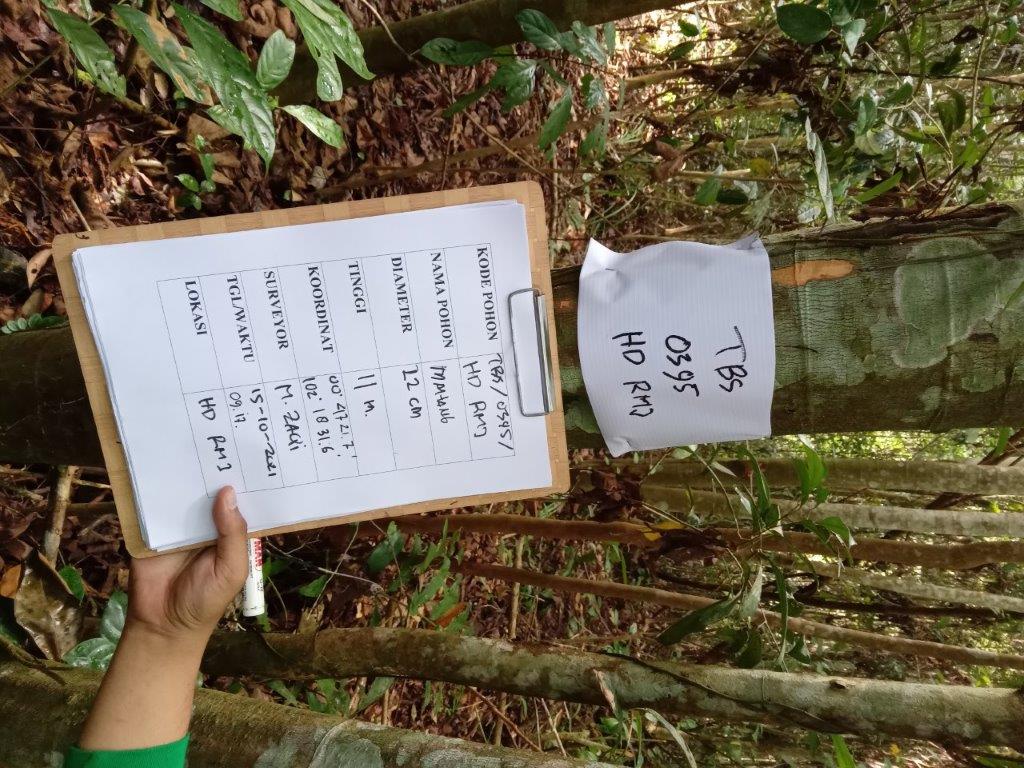 TBS
0395
HD RMJ
KODE POHON TBS/0395/
HD RMJ
NAMA POHON MAHANG
DIAMETER 22 CM
TINGGI 11 M.
KOORDINAT 00° 47'21.7"
102° 18 31.6
SURVEYOR M. ZAQI
TGL/WAKTU 15-10-2021
09.17.
LOKASI HD RMJ